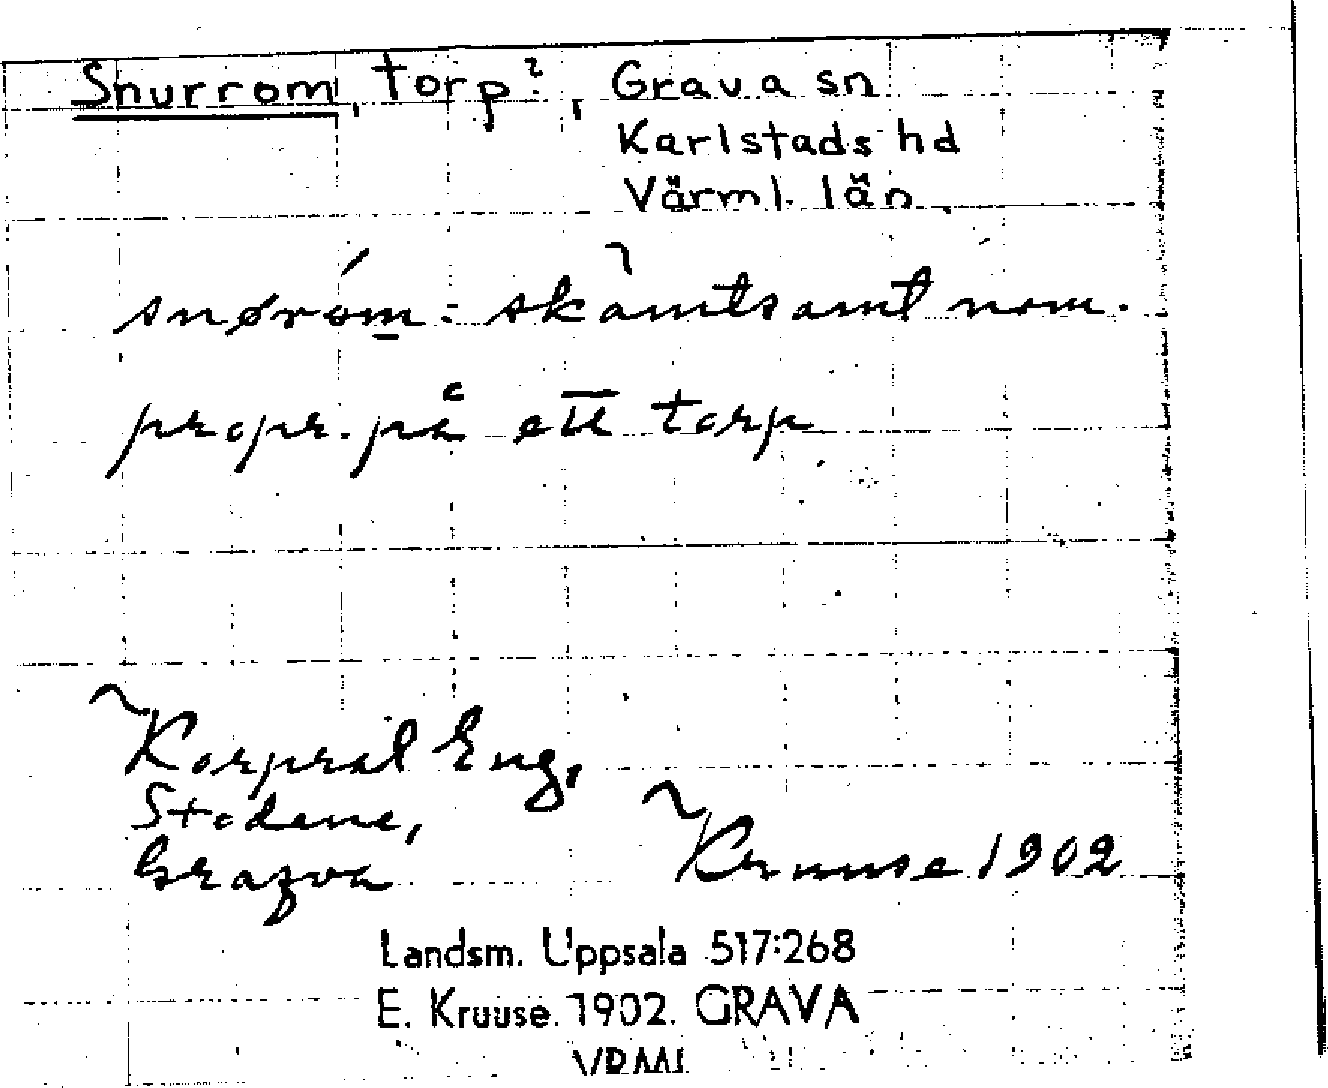 Snurrom, torp?, Grava sn
Karlstads hd
Värml. län
snørom: skämtsamt nom.
propr. på ett torp
Korpral Eng,
Stodene,
Grafva
Kruuse 1902
Landsm. Uppsala 517:268
E. Kruuse. 1902. GRAVA
VRML